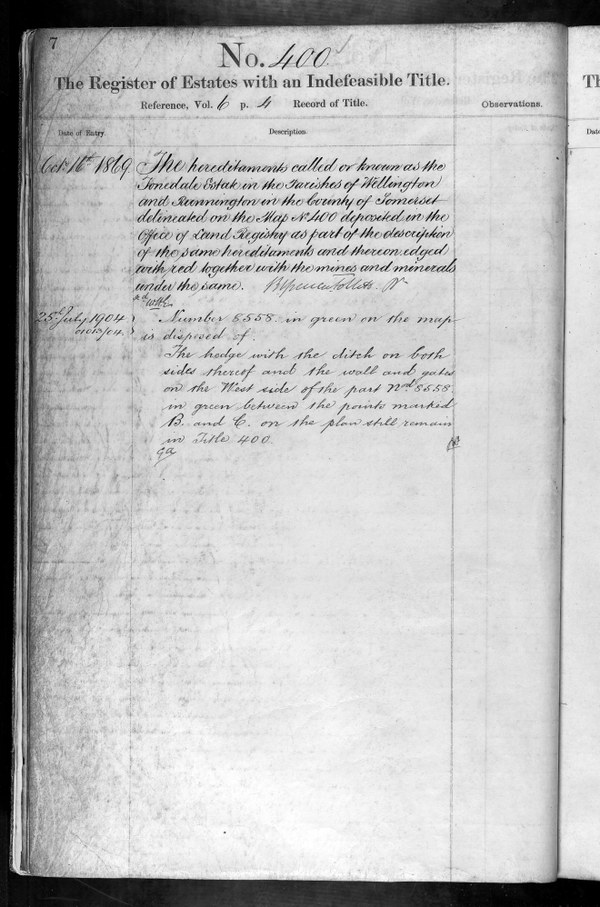 7
No. 400
The Register of Estates with an Indefeasible Title.
Reference, Vol. 6 p. 4 Record of Title.
Observations.
Date of Entry
Description.
Oct. 16th 1869
The hereditaments called or known as the
Tonedale Estate in the Parishes of Wellington
and Runnington in the County of Somerset
delineated on the Map No. 400 deposited in the
Office of Land Registry as part of the description
of the same hereditaments and thereon edged
with red together with the mines and minerals
under the same.
25th July 1904
Number 8558 in green on the map
is disposed of.
The hedge with the ditch on both
sides thereof and the wall and gates
on the West side of the part nd. 8558
in green between the points marked
B. and C. on the plan still remain
in Title 400.
Th
Date